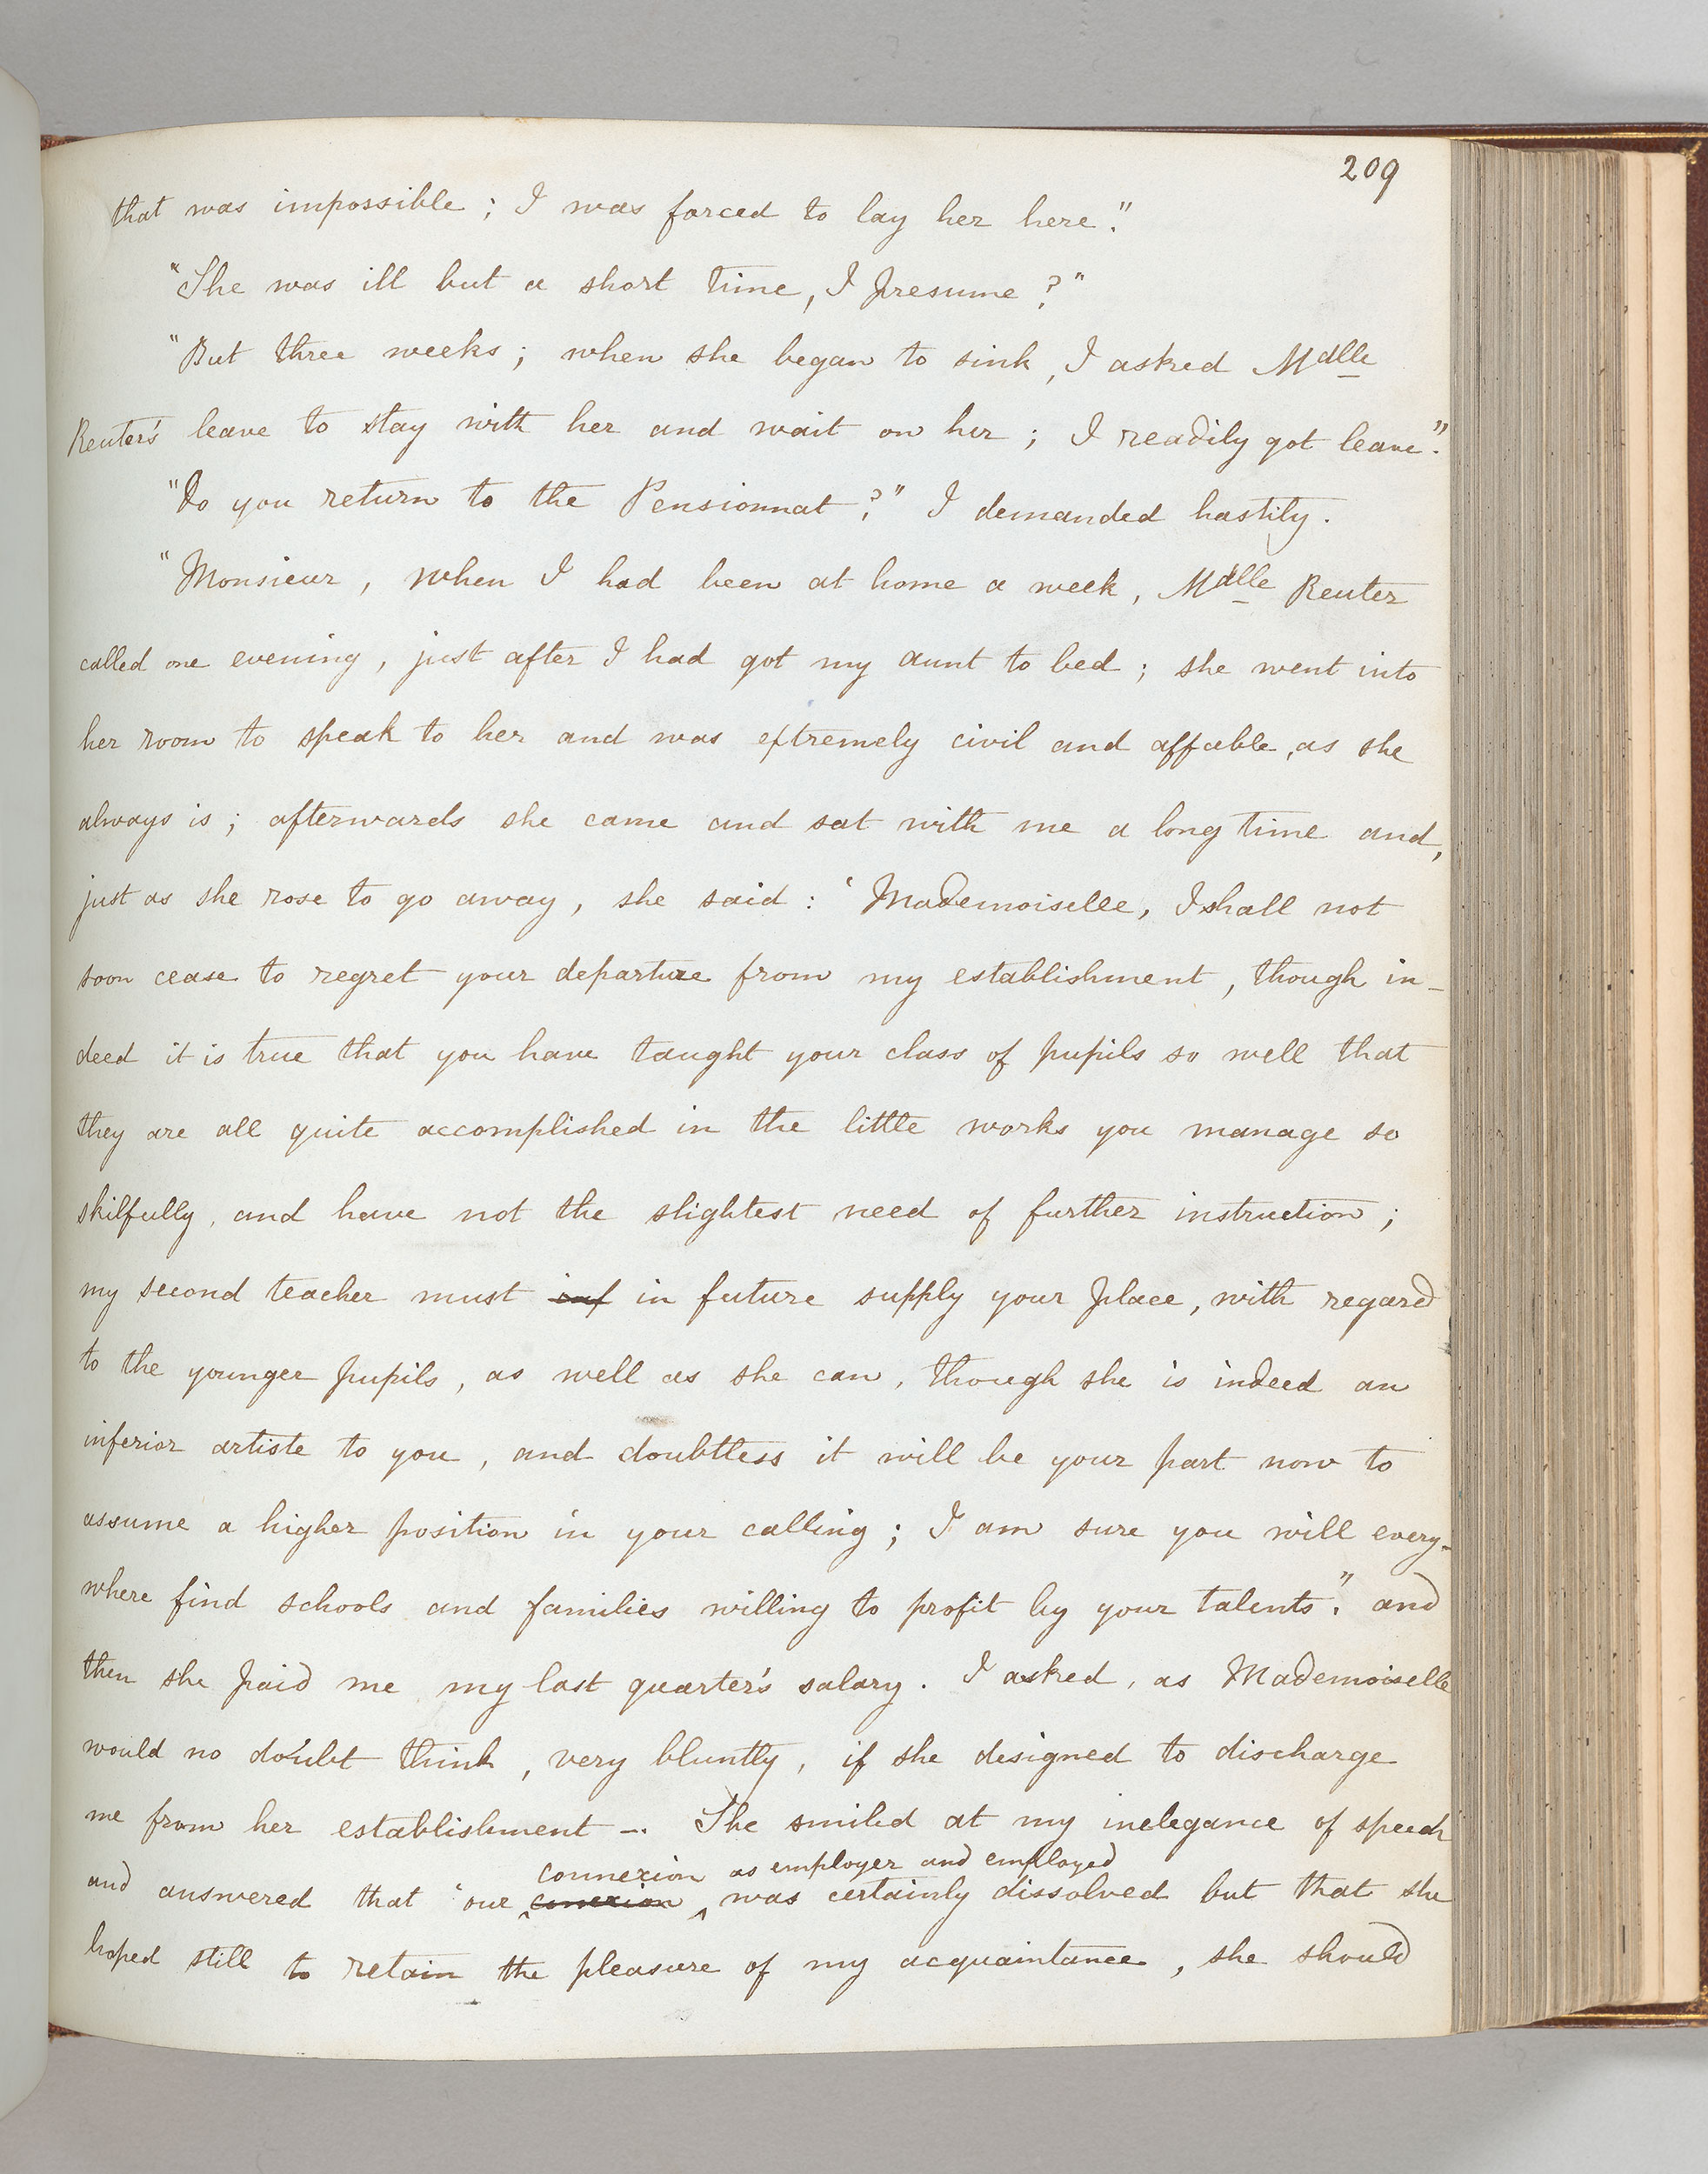 209
that was impossible ; I was forced to lay her here."
"She was ill but a short time, I presume ?"
"But three weeks ; when she began to sink, I asked Mdlle
Reuter's leave to stay with her and wait on her ; I readily got leave."
"Do you return to the Pensionnat ?" I demanded hastily.
"Monsieur, when I had been at home a week, Mdlle Reuter
called one evening, just after I had got my aunt to bed ; she went into
her room to speak to her and was extremely civil and affable, as she
always is ; afterwards she came and sat with me a long time and,
just as she rose to go away, she said : 'Mademoiselle, I shall not
soon cease to regret your departure from my establishment, though in-
deed it is true that you have taught your class of pupils so well that
they are all quite accomplished in the little works you manage so
skilfully, and have not the slightest need of further instruction ;
my second teacher must in future supply your place, with regard
to the younger pupils, as well as she can, though she is indeed an
inferior artiste to you, and doubtless it will be your part now to
assume a higher position in your calling ; I am sure you will every-
where find schools and families willing to profit by your talents." and
then she paid me my last quarter's salary. I asked, as Mademoiselle
would no doubt think, very bluntly, if she designed to discharge
me from her establishment -. She smiled at my inelegance of speech
connexion as employer and employed
and answered that 'our conexion was certainly dissolved but that she
hoped still to retain the pleasure of my acquaintance, she should